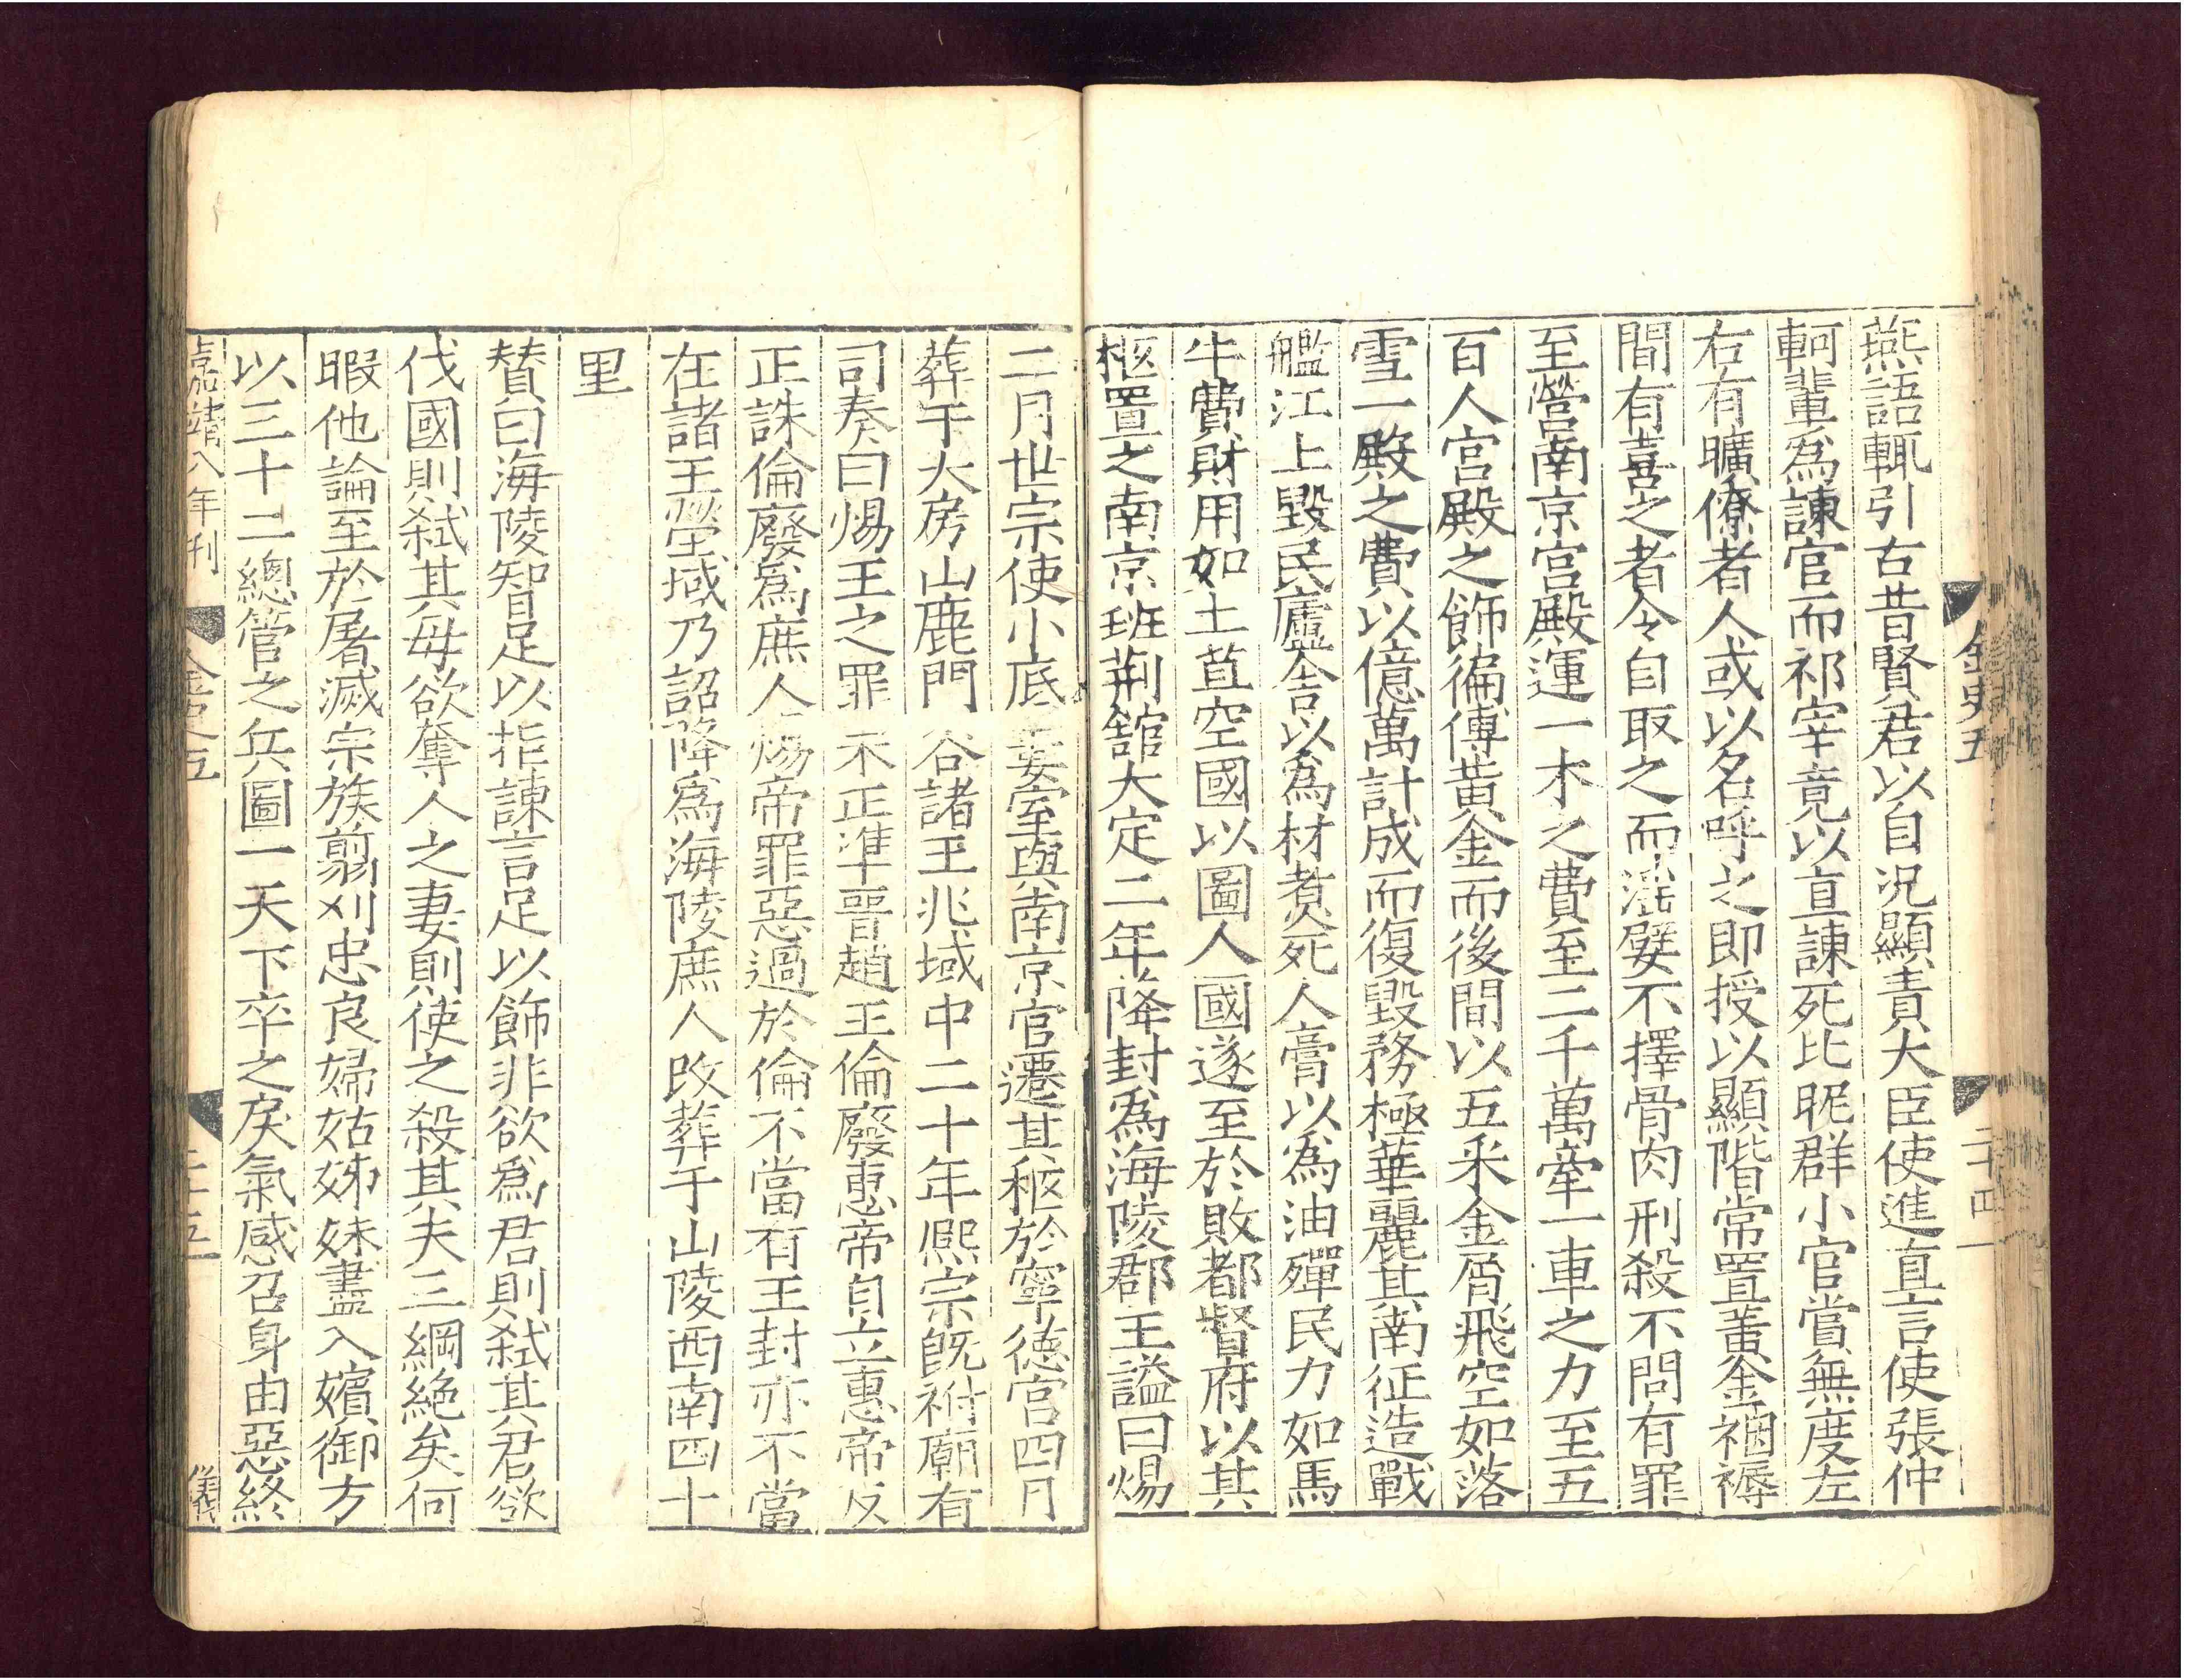 金史五 二十四
燕語輒引古昔賢君以自況顯責大臣使進直言使張仲
軻輩爲諫官而祁宰竟以直諫死比昵群小官賞無度左
右有曠僚者人或以名呼之即授以顯階常置黃金裀褥
間有喜之者令自取之而淫嬖不擇骨肉刑殺不問有罪
至營南京宮殿運一木之費至二千萬牽一車之力至五
百人宮殿之飾徧傅黃金而後間以五采金屑飛空如落
雪一殿之費以億萬計成而復毀務極華麗其南征造戰
艦江上毀民廬舍以爲材煑死人膏以爲油殫民力如馬
牛費財用如土苴空國以圖人國遂至於敗都督府以其
柩置之南京班荆館大定二年降封爲海陵郡王謚曰煬
二月世宗使小底婁室與南京官遷其柩於寧德宮四月
葬于大房山鹿門谷諸王兆域中二十年熙宗旣祔廟有
司奏曰煬王之罪未正準晉趙王倫廢惠帝自立惠帝反
正誅倫廢爲庶人煬帝罪惡過於倫不當有王封亦不當
在諸王塋域乃詔降爲海陵庶人改葬于山陵西南四十
里
賛曰海陵智足以拒諫言足以飾非欲爲君則弑其君欲
伐國則弑其母欲奪人之妻則使之殺其夫三綱絕矣何
暇他論至於屠滅宗族翦刈忠良婦姑姊妹盡入嬪御方
以三十二總管之兵圖一天下卒之戾氣感召身由惡終
嘉靖八年刊 金史五 二十五 儀